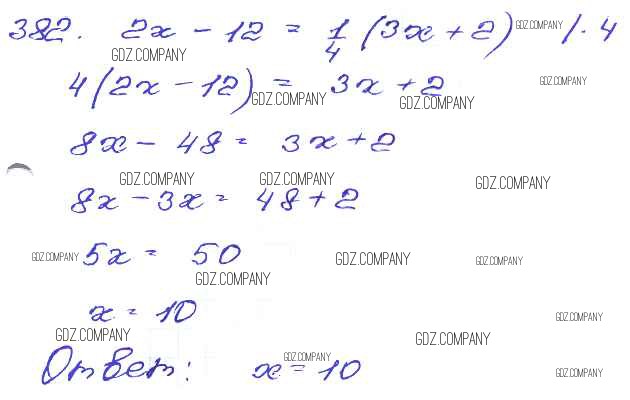 382. 2x - 12 = 1/4 (3x + 2) GDZ.COMPANY /· 4
GDZ.COMPANY
4(2x - 12) = 3x + 2 GDZ.COMPANY
GDZ.COMPANY GDZ.COMPANY
8x - 48 = 3x + 2
GDZ.COMPANY GDZ.COMPANY GDZ.COMPANY
8x - 3x = 48 + 2
GDZ.COMPANY 5x = 50 GDZ.COMPANY GDZ.COMPANY
GDZ.COMPANY
x = 10 GDZ.COMPANY
GDZ.COMPANY GDZ.COMPANY
GDZ.COMPANY
Ответ: x = 10 GDZ.COMPANY